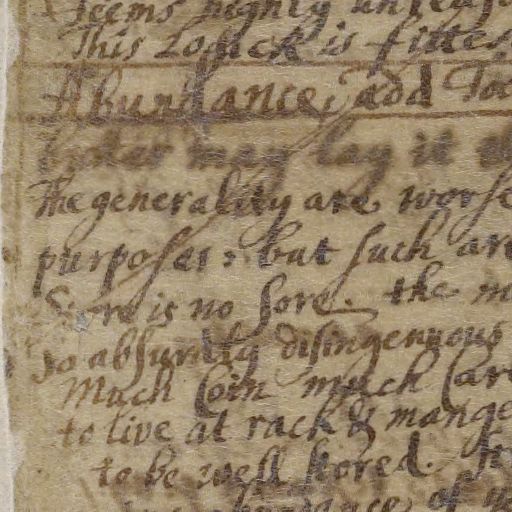 seems highly
This Topick is fittes
Abundance, add To
may lay it
The generality are worse
purposes: but such are
Store is no sore. the m
so absurdly disingenuous
Much Coin much Car
to live at rack & mange
to be well stored.
of